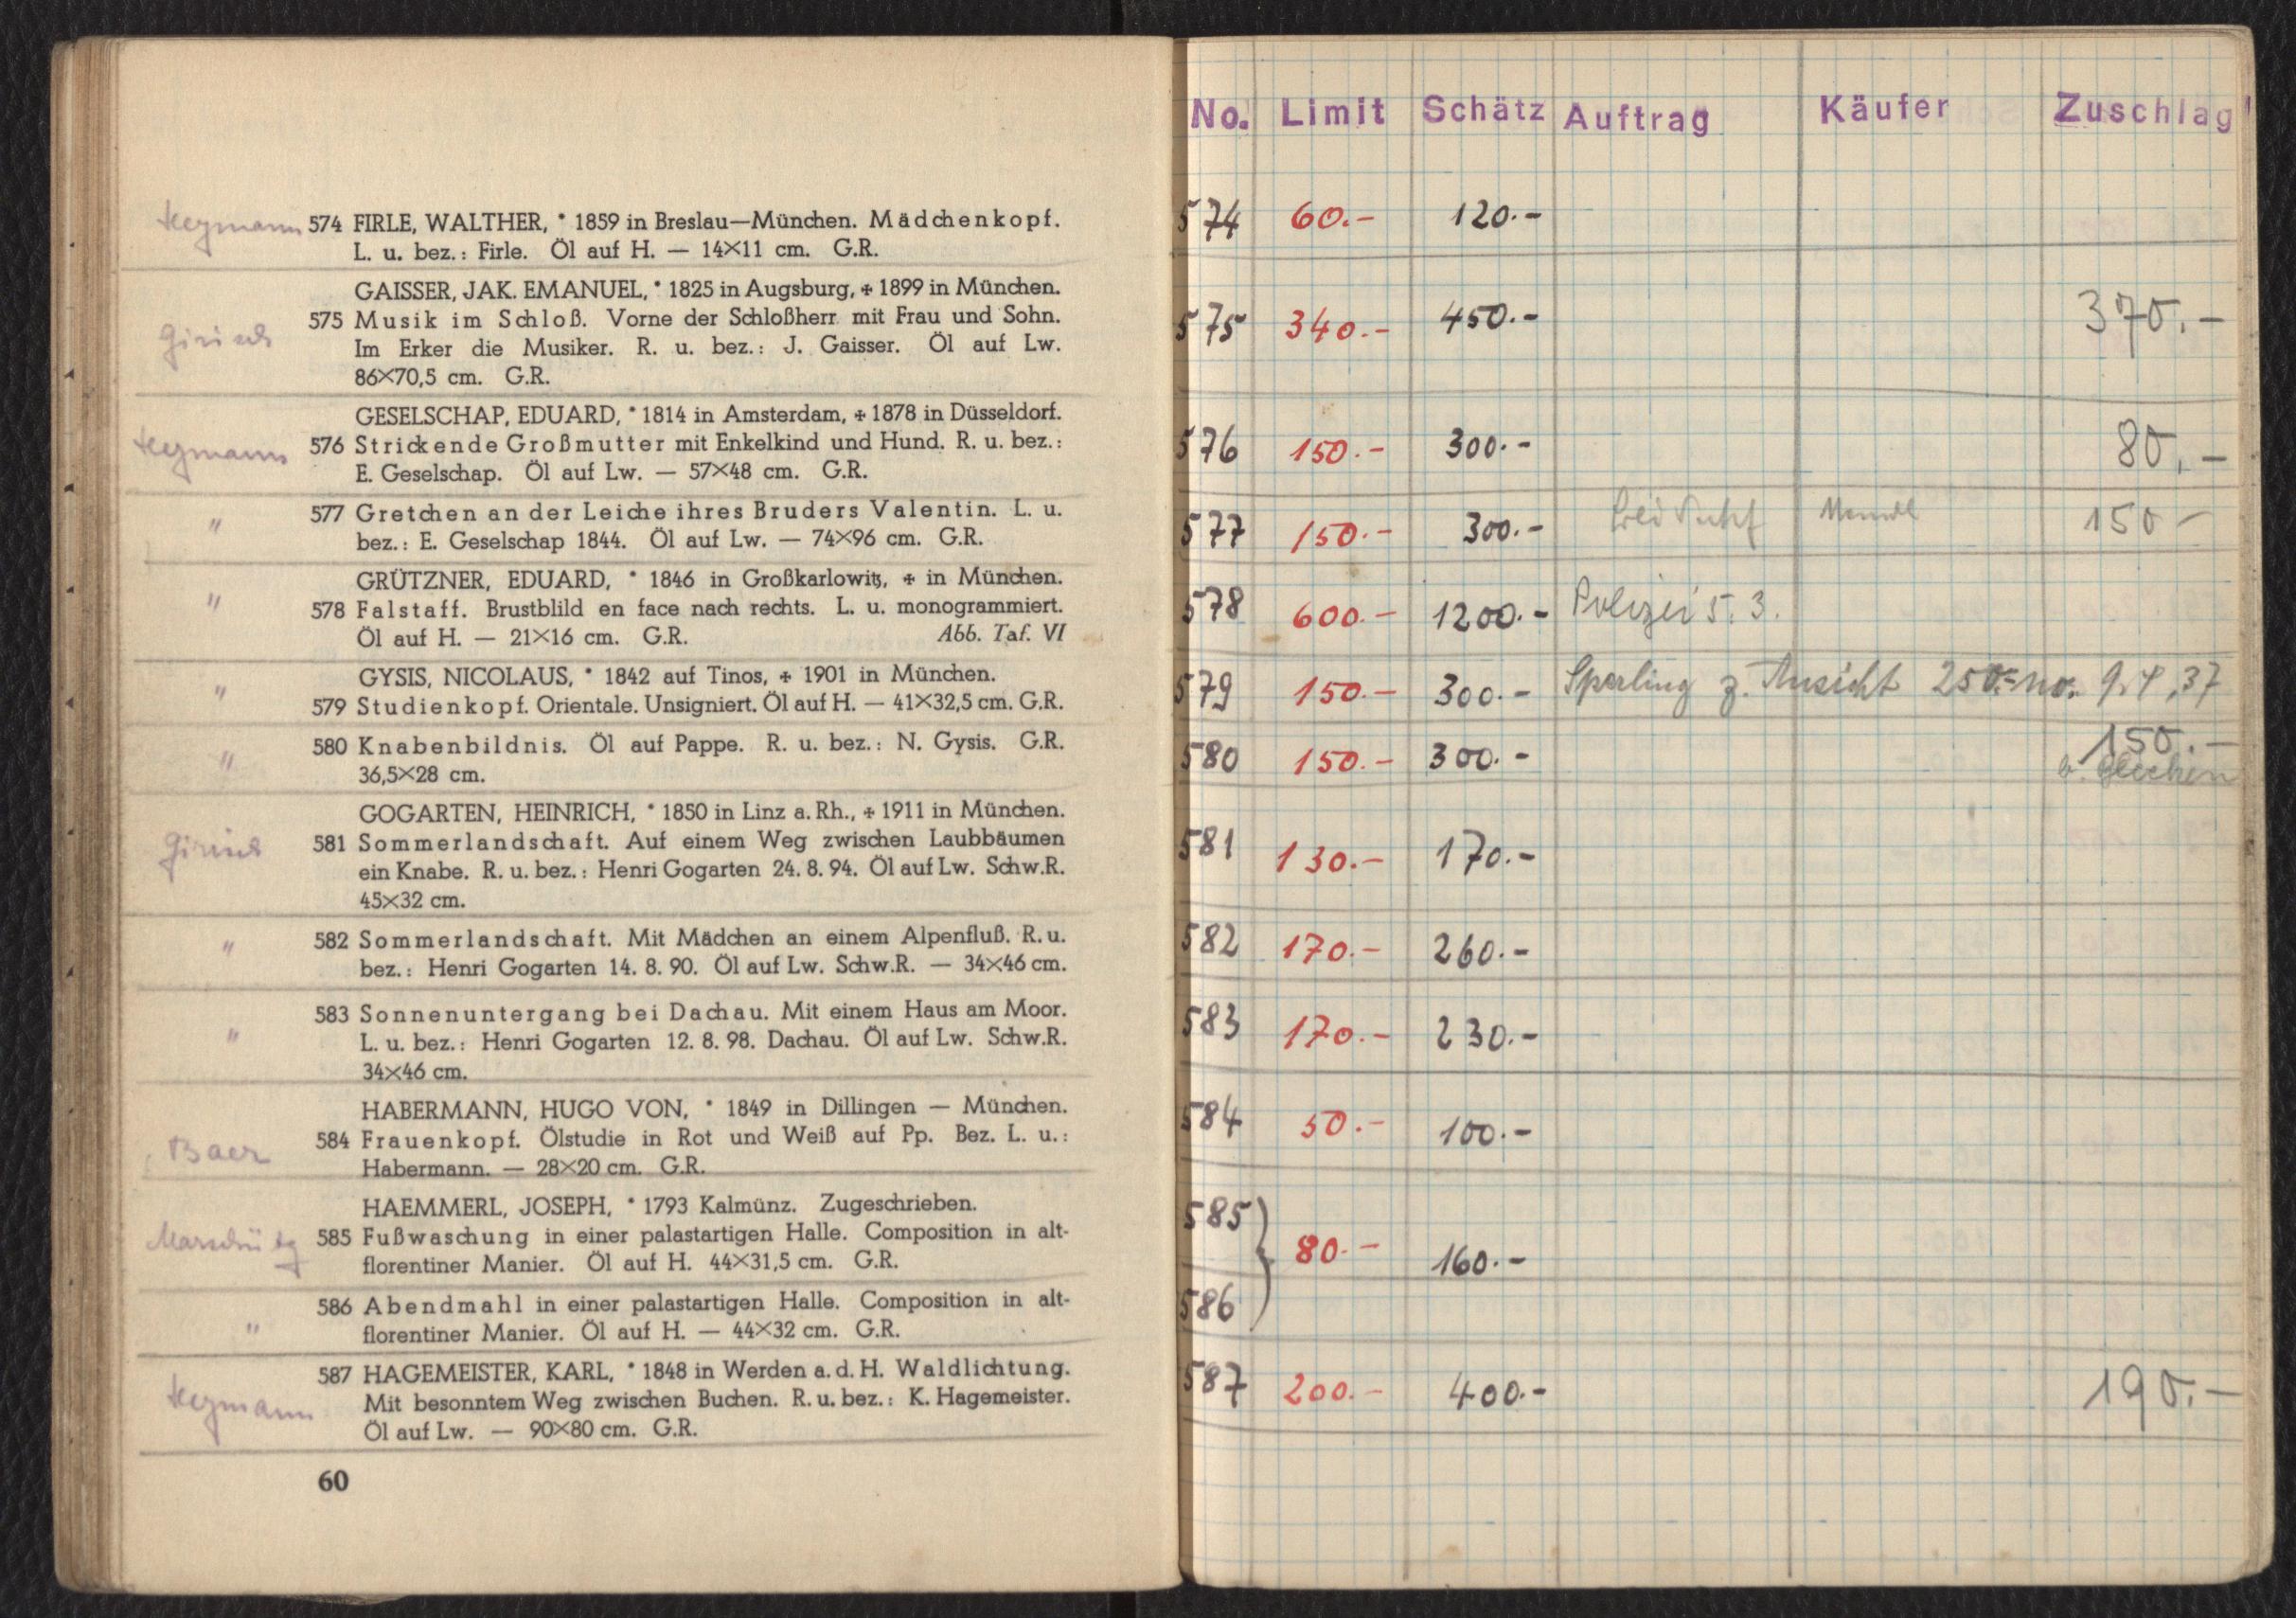 Hegmann 574 FIRLE, WALTHER, * 1859 in Breslau—München. Mädchenkopf.
L. u. bez.: Firle. Öl auf H. — 14×11 cm. G.R.
GAISSER, JAK. EMANUEL, * 1825 in Augsburg, + 1899 in München.
575 Musik im Schloß. Vorne der Schloßherr mit Frau und Sohn.
Im Erker die Musiker. R. u. bez.: J. Gaisser. Öl auf Lw.
86×70,5 cm. G.R.
GESELSCHAP, EDUARD, * 1814 in Amsterdam, + 1878 in Düsseldorf.
Hegmann 576 Strickende Großmutter mit Enkelkind und Hund. R. u. bez.:
E. Geselschap. Öl auf Lw. — 57×48 cm. G.R.
" 577 Gretchen an der Leiche ihres Bruders Valentin. L. u.
bez.: E. Geselschap 1844. Öl auf Lw. — 74×96 cm. G.R.
GRÜTZNER, EDUARD, * 1846 in Großkarlowitz, + in München.
" 578 Falstaff. Brustblild en face nach rechts. L. u. monogrammiert.
Öl auf H. — 21×16 cm. G.R. Abb. Taf. VI
GYSIS, NICOLAUS, * 1842 auf Tinos, + 1901 in München.
" 579 Studienkopf. Orientale. Unsigniert. Öl auf H. — 41×32,5 cm. G.R.
" 580 Knabenbildnis. Öl auf Pappe. R. u. bez.: N. Gysis. G.R.
36,5×28 cm.
GOGARTEN, HEINRICH, * 1850 in Linz a. Rh., + 1911 in München.
581 Sommerlandschaft. Auf einem Weg zwischen Laubbäumen
ein Knabe. R. u. bez.: Henri Gogarten 24. 8. 94. Öl auf Lw. Schw.R.
45×32 cm.
" 582 Sommerlandschaft. Mit Mädchen an einem Alpenfluß. R. u.
bez.: Henri Gogarten 14. 8. 90. Öl auf Lw. Schw.R. — 34×46 cm.
" 583 Sonnenuntergang bei Dachau. Mit einem Haus am Moor.
L. u. bez.: Henri Gogarten 12. 8. 98. Dachau. Öl auf Lw. Schw.R.
34×46 cm.
HABERMANN, HUGO VON, * 1849 in Dillingen — München.
Baer 584 Frauenkopf. Ölstudie in Rot und Weiß auf Pp. Bez. L. u.:
Habermann. — 28×20 cm. G.R.
HAEMMERL, JOSEPH, * 1793 Kalmünz. Zugeschrieben.
Marschütz 585 Fußwaschung in einer palastartigen Halle. Composition in alt-
florentiner Manier. Öl auf H. 44×31,5 cm. G.R.
" 586 Abendmahl in einer palastartigen Halle. Composition in alt-
florentiner Manier. Öl auf H. — 44×32 cm. G.R.
587 HAGEMEISTER, KARL, * 1848 in Werden a. d. H. Waldlichtung.
Hegmann Mit besonntem Weg zwischen Buchen. R. u. bez.: K. Hagemeister.
Öl auf Lw. — 90×80 cm. G.R.
60
No. Limit Schätz Auftrag Käufer Zuschlag
574 60.- 120.-
575 340.- 450.- 370.-
576 150.- 300.- 80.-
577 150.- 300.- 150-
578 600.- 1200.- Polizei 5. 3.
579 150.- 300.- Sperling z. Ansicht 250.- 9.4.37
580 150.- 300.- 150.-
581 130.- 170.-
582 170.- 260.-
583 170.- 230.-
584 50.- 100.-
585 } 80.- 160.-
586
587 200.- 400.- 190.-